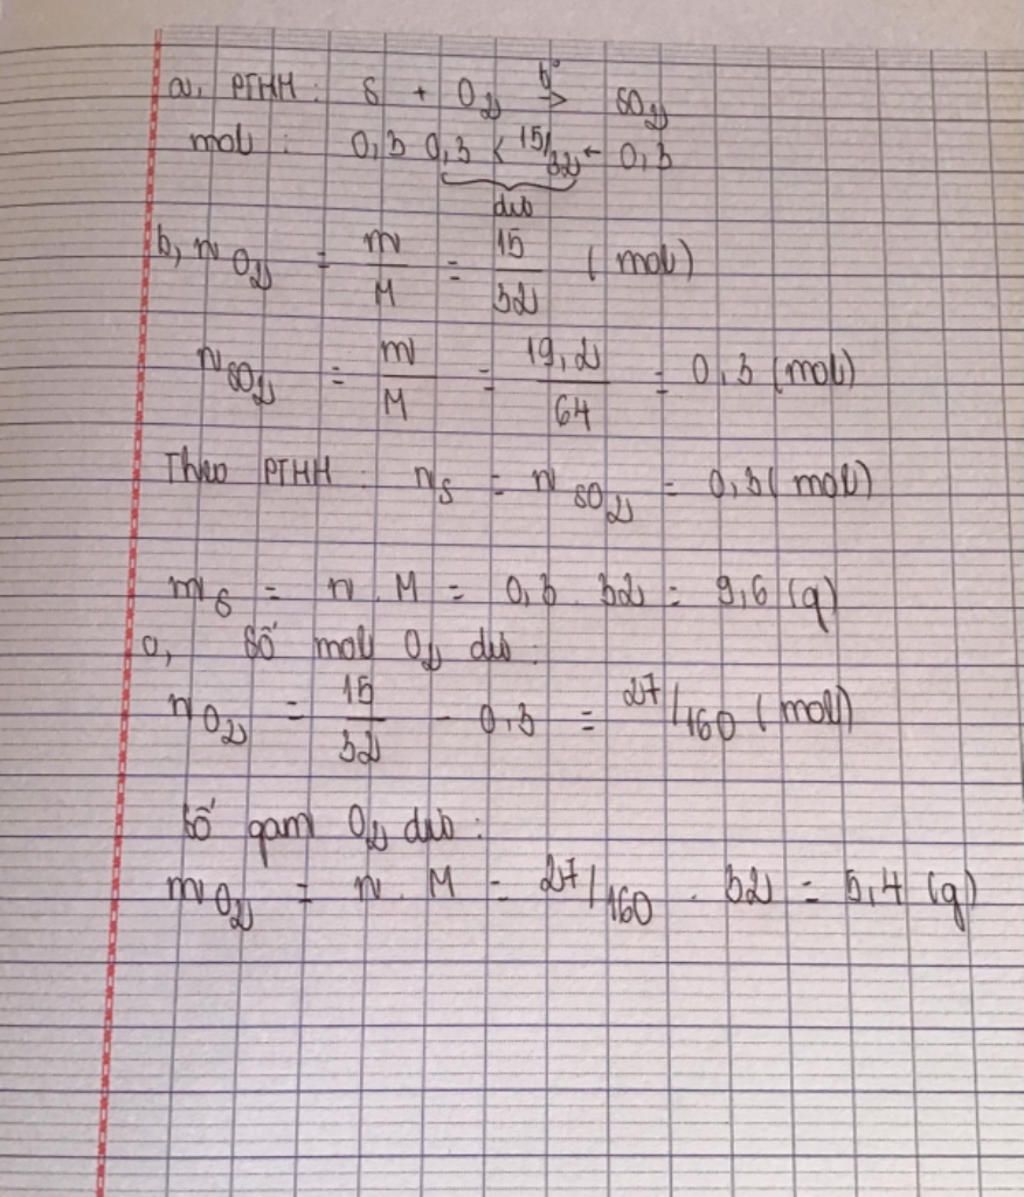 a, PTHH: S + O₂ →(t°) SO₂
mol: 0,3 0,3 < 15/32 ← 0,3
dư
b, n O₂ = m/M = 15/32 (mol)
n SO₂ = m/M = 19,2/64 = 0,3 (mol)
Theo PTHH: n S = n SO₂ = 0,3 (mol)
m S = n . M = 0,3 . 32 = 9,6 (g)
c, Số mol O₂ dư:
n O₂ = 15/32 - 0,3 = 27/160 (mol)
Số gam O₂ dư:
m O₂ = n . M = 27/160 . 32 = 5,4 (g)